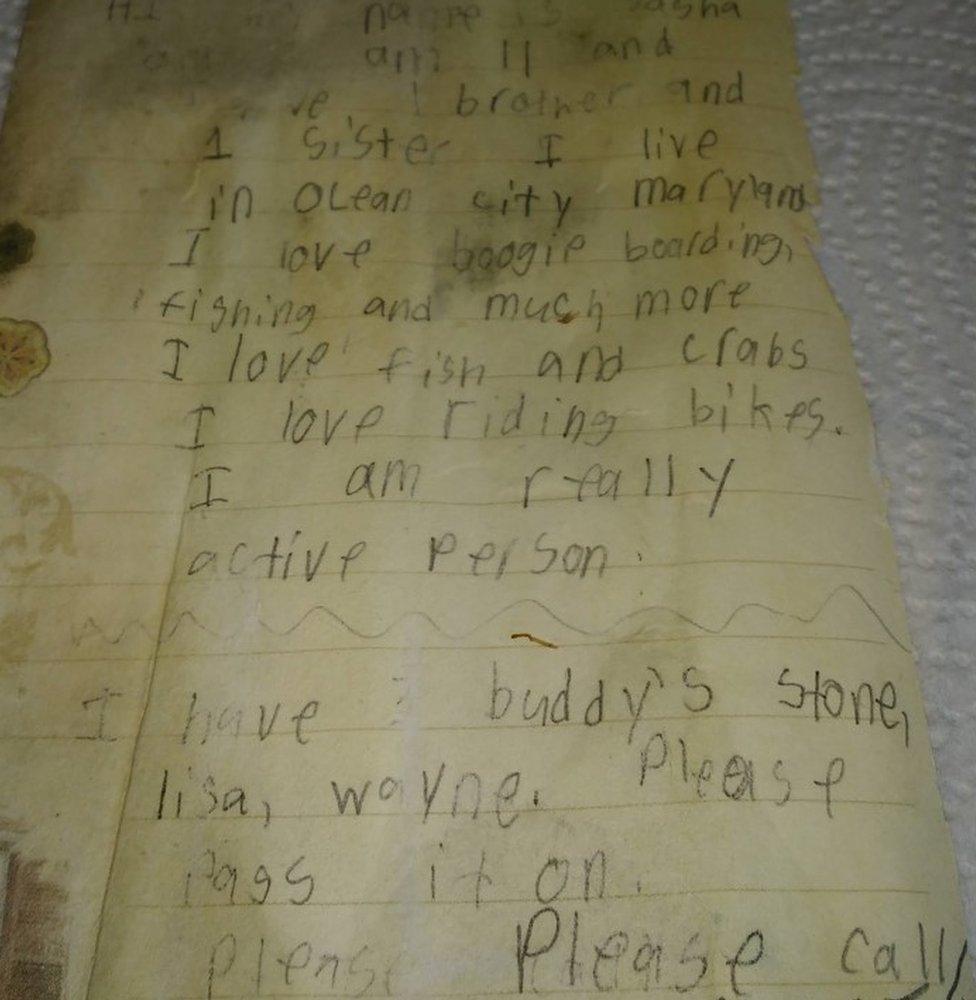 HI my name is Sasha
am 11 and
1 brother and
1 Sister I live
in Ocean city maryland
I love boogie boarding,
fishing and much more
I love fish and crabs
I love riding bikes.
I am really
active person.
I have buddy's stone,
lisa, wayne. Please
Pass it on.
Please Please call